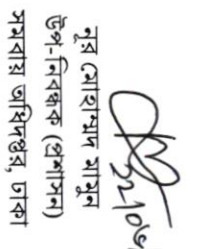 নুর মোহাম্মদ মামুন
উপ-নিবন্ধক (প্রশাসন)
সমবায় অধিদপ্তর, ঢাকা